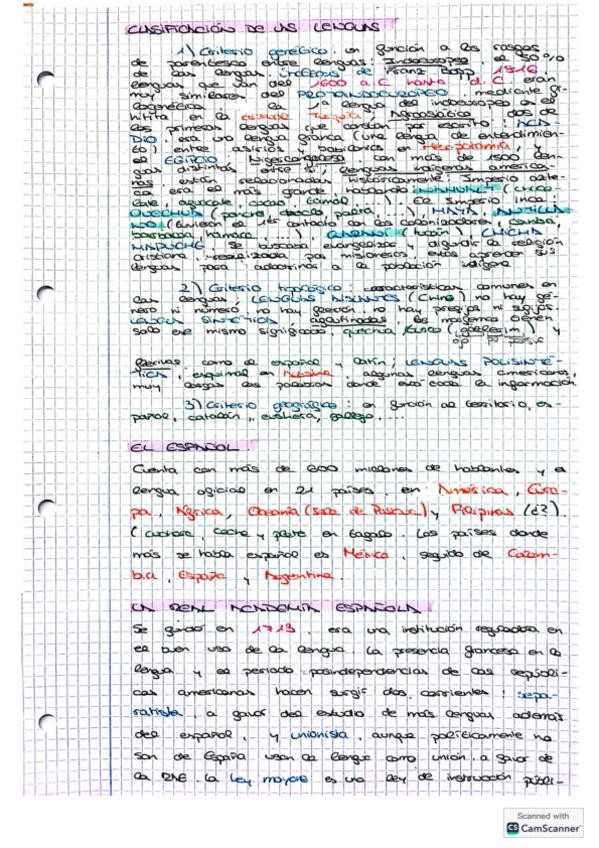 CLASIFICACIÓN DE LAS LENGUAS
1) Criterio genético: en función a los rasgos
de parentesco entre lenguas: Indoeuropeo, el 50%
de las lenguas. Franz Bopp 1816.
lenguas que van del 1600 a.C hasta d.C eran
muy similares del PROTOINDOEUROPEO mediante
la 1ª lengua del indoeuropeo es el
hitita en la Turquía, Agroasiático dos de
las primeras lenguas que constan por escrito: ACA-
DIO era una lengua franca (una lengua de entendimien-
to) entre asirios y babilonios en Mesopotamia, y
el EGIPCIO. Nigercongoleso, con más de 1500 len-
guas distintas entre sí, lenguas indígenas america-
nas, están relacionadas históricamente. Imperio azte-
ca era el más grande hablando NAHUALT (choco-
late, aguacate, cacao, tamal...). El Imperio Inca:
QUECHUA (poncho, papa, ...), MAYA, ANTILLA
NO (tuvieron el 1er contacto con los colonizadores
barbacoa, hamaca, ...), GUARANÍ (tucán), CHICHA
MAPUCHE. Se buscaba evangelizar y difundir la religión
cristiana, realizada por misioneros, estos aprenden sus
lenguas para adoctrinar a la población indígena
2) Criterio tipológico: características comunes en
las lenguas, LENGUAS AISLANTES (Chino) no hay gé-
nero ni número no hay flexión, no hay prefijos ni sufijos.
LENGUA SINTÉTICA aglutinadas, los morfemas tienen
solo ese mismo significado, quechua, y
flexivas como el español y latín; LENGUAS POLISINTÉ-
TICA, esquimal en Alaska, algunas lenguas americanas,
muy largas las palabras donde está toda la información.
3) Criterio geográfico: en función al territorio, es-
pañol, catalán, euskera, gallego, ...
EL ESPAÑOL.
Cuenta con más de 600 millones de hablantes y es
lengua oficial en 21 países, en América, Euro-
pa, África, Oceanía (Isla de Pascua) y Filipinas (¿?).
(cuchara, coche y plato en tagalo. Los países donde
más se habla español es México, seguido de Colom-
bia, España y Argentina.
LA REAL ACADEMIA ESPAÑOLA
Se fundó en 1713, era una institución reguladora en
el buen uso de la lengua. La presencia francesa en la
lengua y el periodo posindependencias de las repúbli-
cas americanas hacen surgir dos corrientes: sepa-
ratista, a favor del estudio de más lenguas además
del español, y unionista, aunque políticamente no
son de España usan la lengua como unión, a favor de
la RAE. La Ley moyano es una ley de instrucción públi-
Scanned with
CS CamScanner